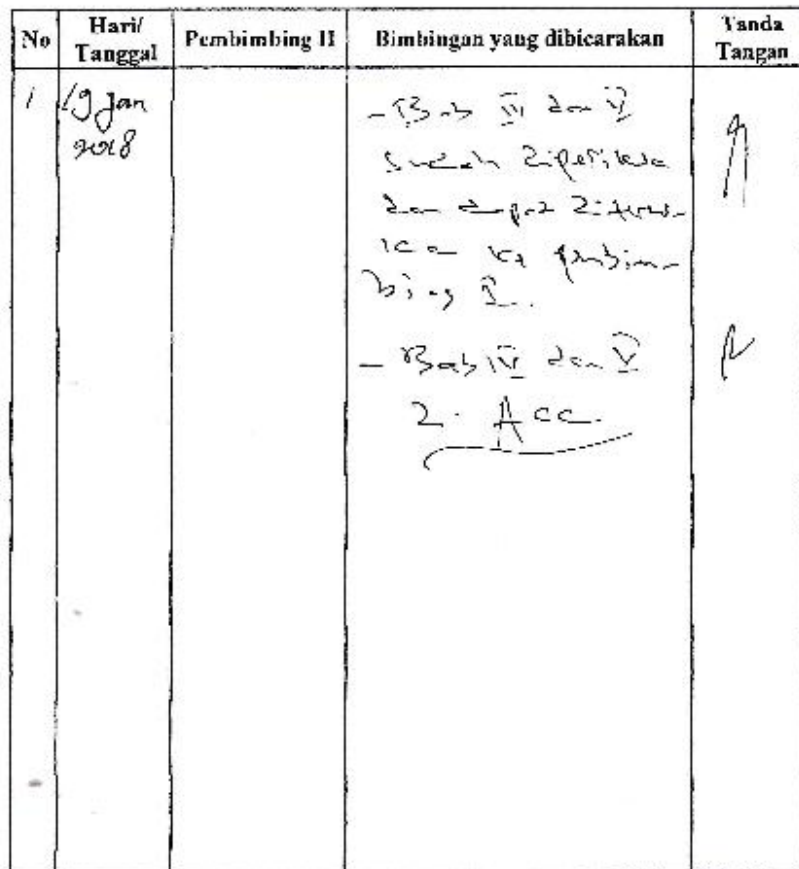 No Hari/ Tanggal Pembimbing II Bimbingan yang dibicarakan Tanda Tangan
1 19 Jan 2018
- Bab IV dan V
sudah diperiksa
dan dapat diterus-
kan ke pembim-
bing I.
- Bab IV dan V
di Acc